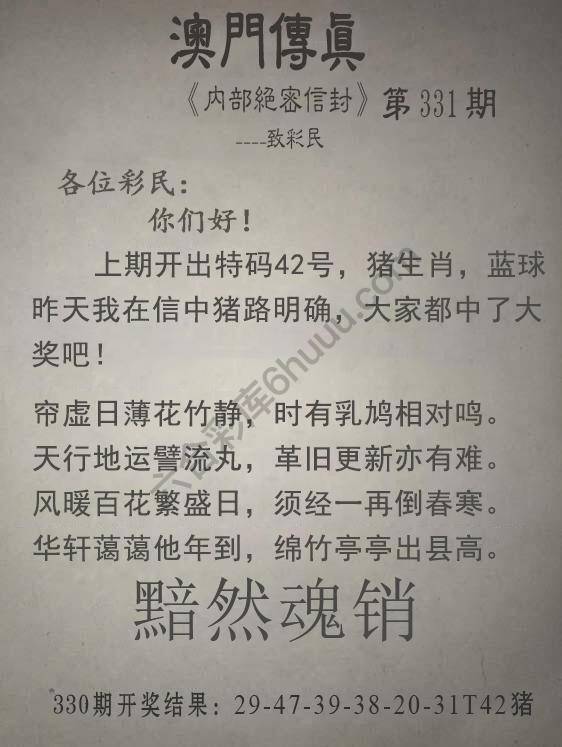 澳門傳真
《内部絕密信封》第331期
----致彩民
各位彩民：
你们好！
上期开出特码42号，猪生肖，蓝球
昨天我在信中猪路明确，大家都中了大
奖吧！
帘虚日薄花竹静，时有乳鸠相对鸣。
天行地运譬流丸，革旧更新亦有难。
风暖百花繁盛日，须经一再倒春寒。
华轩蔼蔼他年到，绵竹亭亭出县高。
黯然魂销
330期开奖结果：29-47-39-38-20-31T42猪
六合彩库6huuu.com